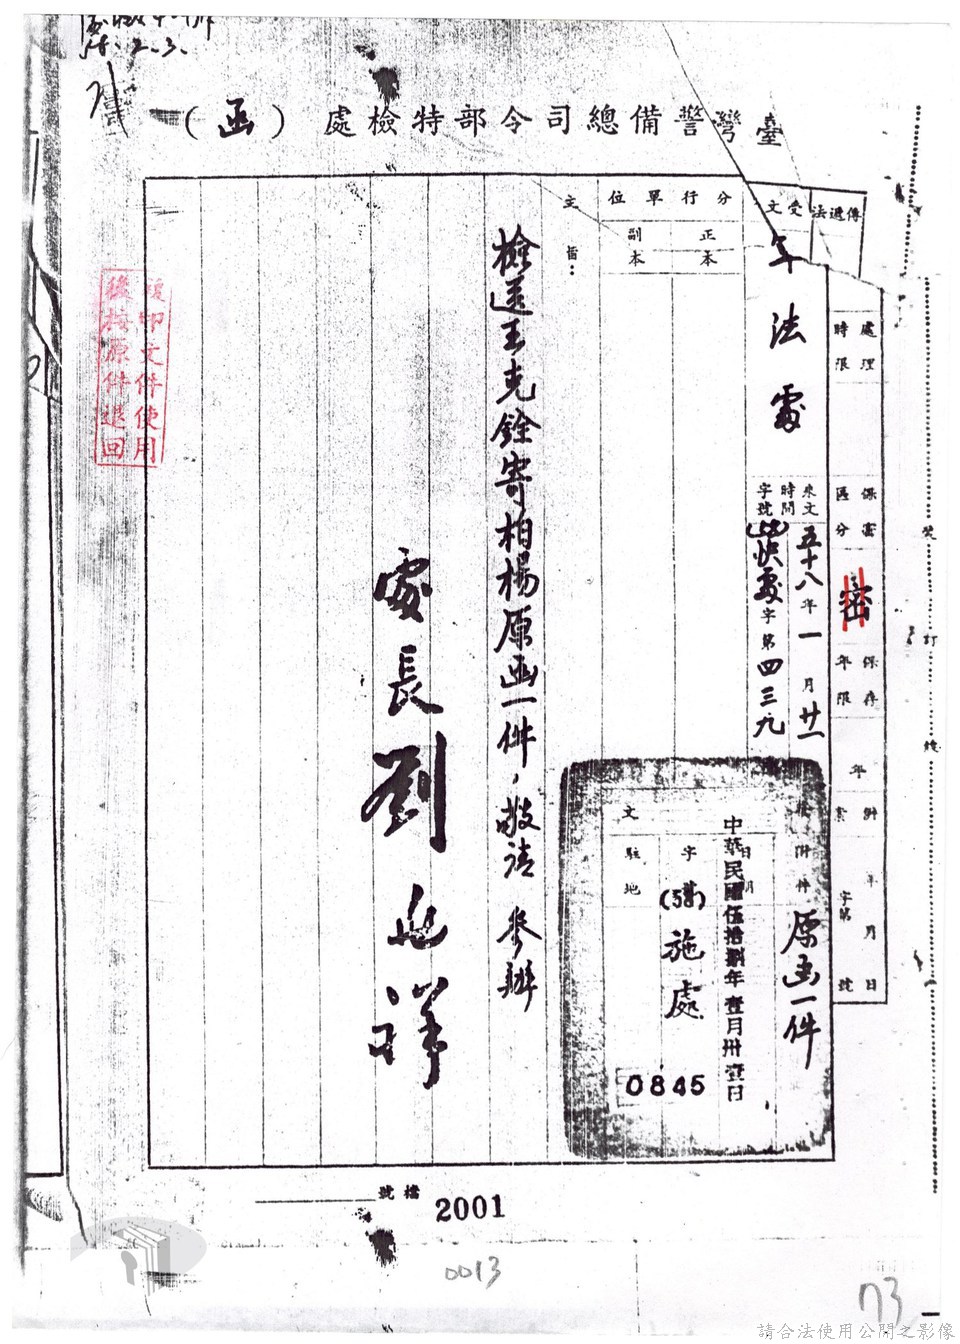 58.2.3.
臺灣警備總司令部特檢處（函）
傳遞法
受文
軍法處
處理時限
保密區分
密
保存年限
年
附案
年月日
字第 號
來文時間字號
五十八年一月廿一
(58)快處字第四三九
附件
原函一件
分行單位
正本
副本
主旨：
檢送王克銓寄柏楊原函一件，敬請 參辦
處長劉 祥
文
日期
中華民國伍拾捌年壹月卅壹日
字號
(58)施處
0845
駐地
印文件使用
後檢原件退回
裝
訂
線
檔號
2001
0013
73
請合法使用公開之影像